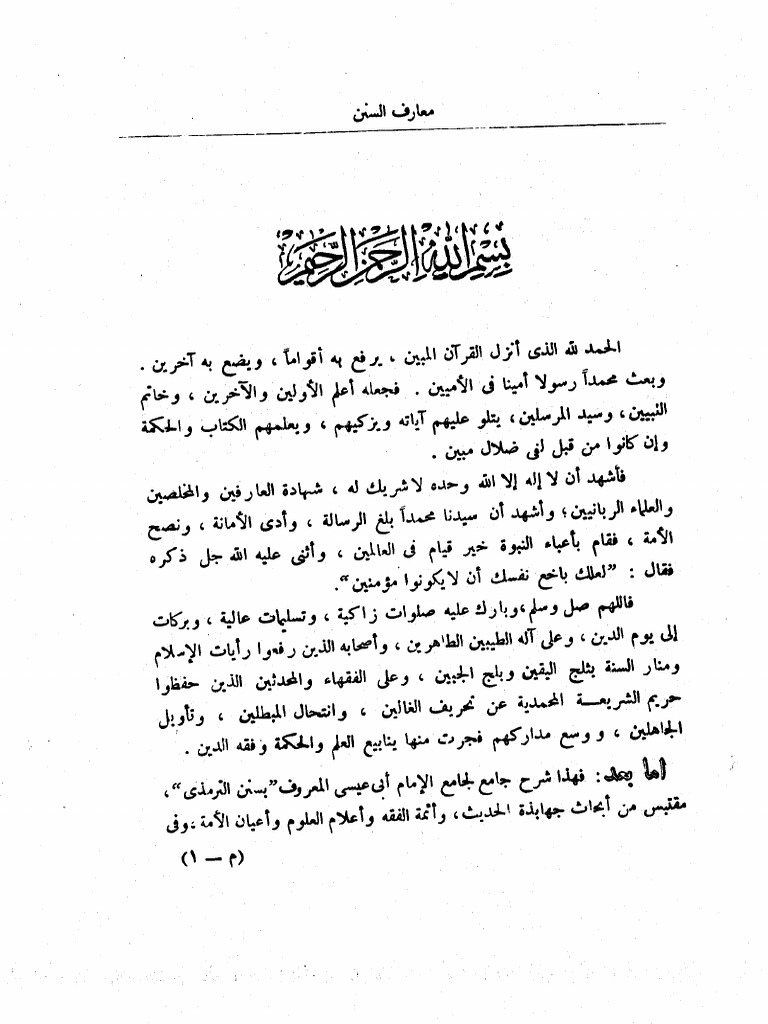 معارف السنن
بِسْمِ اللهِ الرَّحْمٰنِ الرَّحِيْمِ
الحمد لله الذى أنزل القرآن المبين ، يرفع به أقواماً ، ويضع به آخرين .
وبعث محمداً رسولا أمينا فى الأميين . فجعله أعلم الأولين والآخرين ، وخاتم
النبيين، وسيد المرسلين، يتلو عليهم آياته ويزكيهم ، ويعلمهم الكتاب والحكمة
وإن كانوا من قبل لفى ضلال مبين .
فأشهد أن لا إله إلا الله وحده لاشريك له ، شهادة العارفين والمخلصين
والعلماء الربانيين؛ وأشهد أن سيدنا محمداً بلغ الرسالة ، وأدى الأمانة ، ونصح
الأمة ، فقام بأعباء النبوة خير قيام فى العالمين ، وأثنى عليه الله جل ذكره
فقال : ”لعلك باخع نفسك أن لايكونوا مؤمنين“.
فاللهم صل وسلم،وبارك عليه صلوات زاكية ، وتسليمات عالية ، وبركات
إلى يوم الدين ، وعلى آله الطيبين الطاهرين ، وأصحابه الذين رفعوا رأيات الإسلام
ومنار السنة بثلج اليقين وبلج الجبين ، وعلى الفقهاء والمحدثين الذين حفظوا
حريم الشريعـــة المحمدية عن تحريف الغالين ، وانتحال المبطلين ، وتأويل
الجاهلين ، ووسع مداركهم فجرت منها ينابيع العلم والحكمة وفقه الدين .
أما بعد : فهذا شرح جامع لجامع الإمام أبى عيسى المعروف”بسنن الترمذى“،
مقتبس من أبحاث جهابذة الحديث، وأئمة الفقه وأعلام العلوم وأعيان الأمة ،وفى
(م – ١)